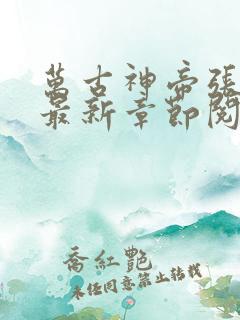 萬古神帝張
最新章節閱
喬紅艷
未經同意禁止轉載